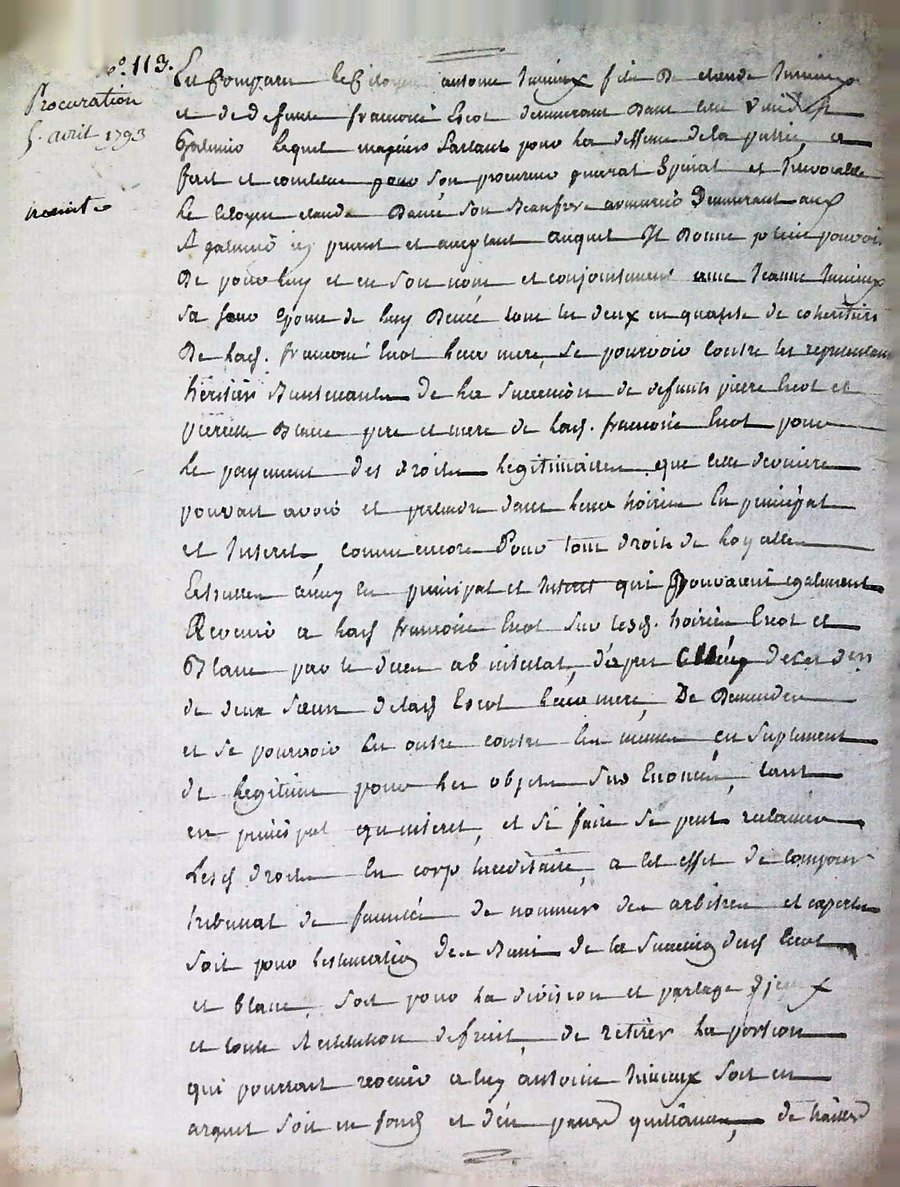 n°. 113.
Procuration
5. avril 1793
En Comparu le Citoyen antoine fils De claude
et de defunte francoise Escot demeurant Dans
Galmier lequel partant pour la deffense de la patrie, a
fait et constitue pour son procureur general Special et Irrevocable
le Citoyen claude son Beaufrere armurier Demeurant aux
present et acceptant auquel Il Donne plein pouvoir
De pour luy et en son nom et conjointement avec Jeanne
Sa soeur Epouse de luy tous les deux en qualité de coheritiers
De lad. francoise Escot leur mere, Se pourvoir Contre les representans
heritiers de la Succession de defunts pierre Escot et
pierrette Blanc pere et mere de lad. francoise Escot pour
le payement des droits legitimaires que cette derniere
pouvait avoir et pretendre dans leur hoirie En principal
et Interet, comme encore Pour tous droits de
En principal et Interet qui Pouvaient egalement
Revenir a lad francoise Escot Sur lesd. hoiries Escot et
Blanc par le decès ab intestat, d'apres
de deux Soeurs de lad Escot leur mere, De Demander
et se pourvoir En outre contre les memes en Suplement
de legitime pour les objets Sus Enoncés, tant
en principal qu'interet, et si faire se peut reclamer
Lesd droits En corps hereditaire, a cet effet de composer
tribunal de famille de nommer des arbitres et experts
soit pour l'estimation des Biens de la Succession desd Escot
et blanc, soit pour la division et partage
et toute Restitution de fruits, de retirer la portion
qui pourrait revenir a luy antoine soit en
argent soit en fonds et d'en passer quittance, de traiter